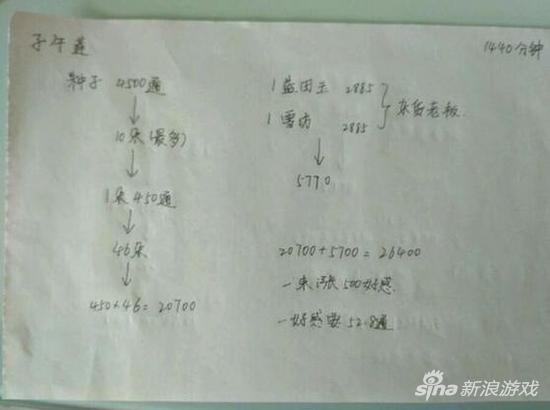 子午莲
1440分钟
种子 4500通
10朵(最多)
1朵450通
46朵
450×46=20700
1蓝田玉 2885
1雪坊 2885
杂货老板
5770
20700+5700=26400
一束涨500好感
一好感要52.8通
sina新浪游戏